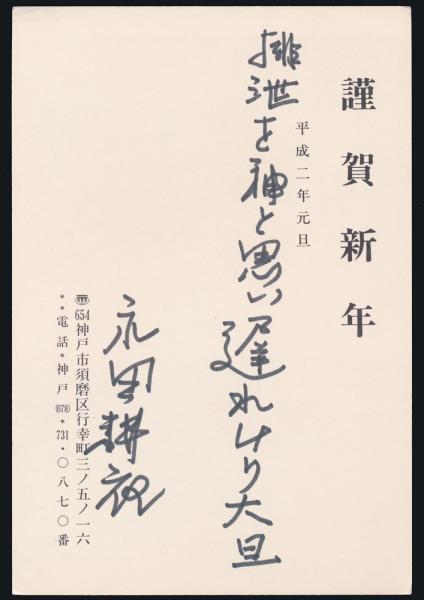 謹賀新年
平成二年元旦
排泄を神と思い遅れけり大旦
永田耕衣
〒654神戸市須磨区行幸町三ノ五ノ一六
**電話*神戸(078)*731・〇八七〇番